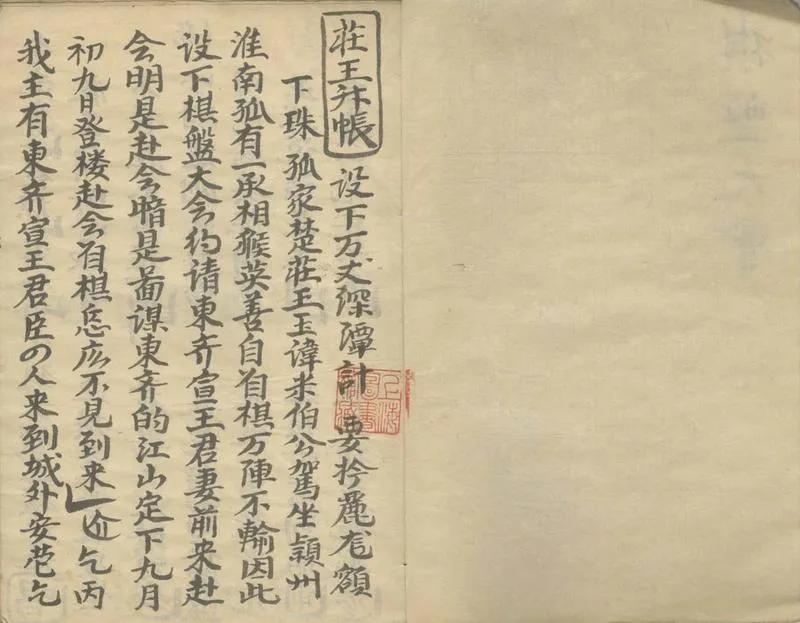 莊王升帳 设下万丈深潭計 要扲驪龙額
下珠 孤家楚莊王玉諱米伯公駕坐潁州
淮南孤有一承相猴英善自着棋万陣不輸因此
设下棋盤大会约請東齐宣王君妻前来赴
会明是赴会暗是啚谋東齐的江山定下九月
初九日登楼赴会着棋怎庅不見到来 乞丙
我主有東齐宣王君臣の人来到城外安芭乞
上海圖書館藏